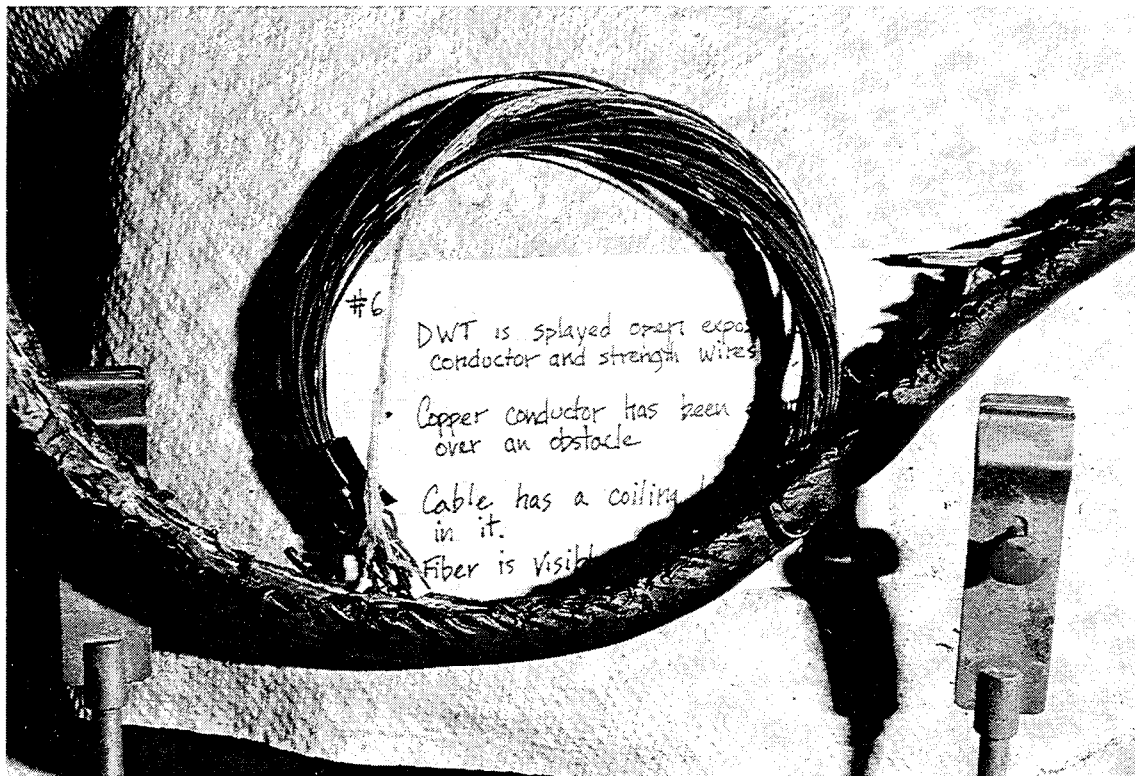 #6
DWT is splayed open expos
conductor and strength wires
Copper conductor has been
over an obstacle
Cable has a coiling
in it.
Fiber is visibl